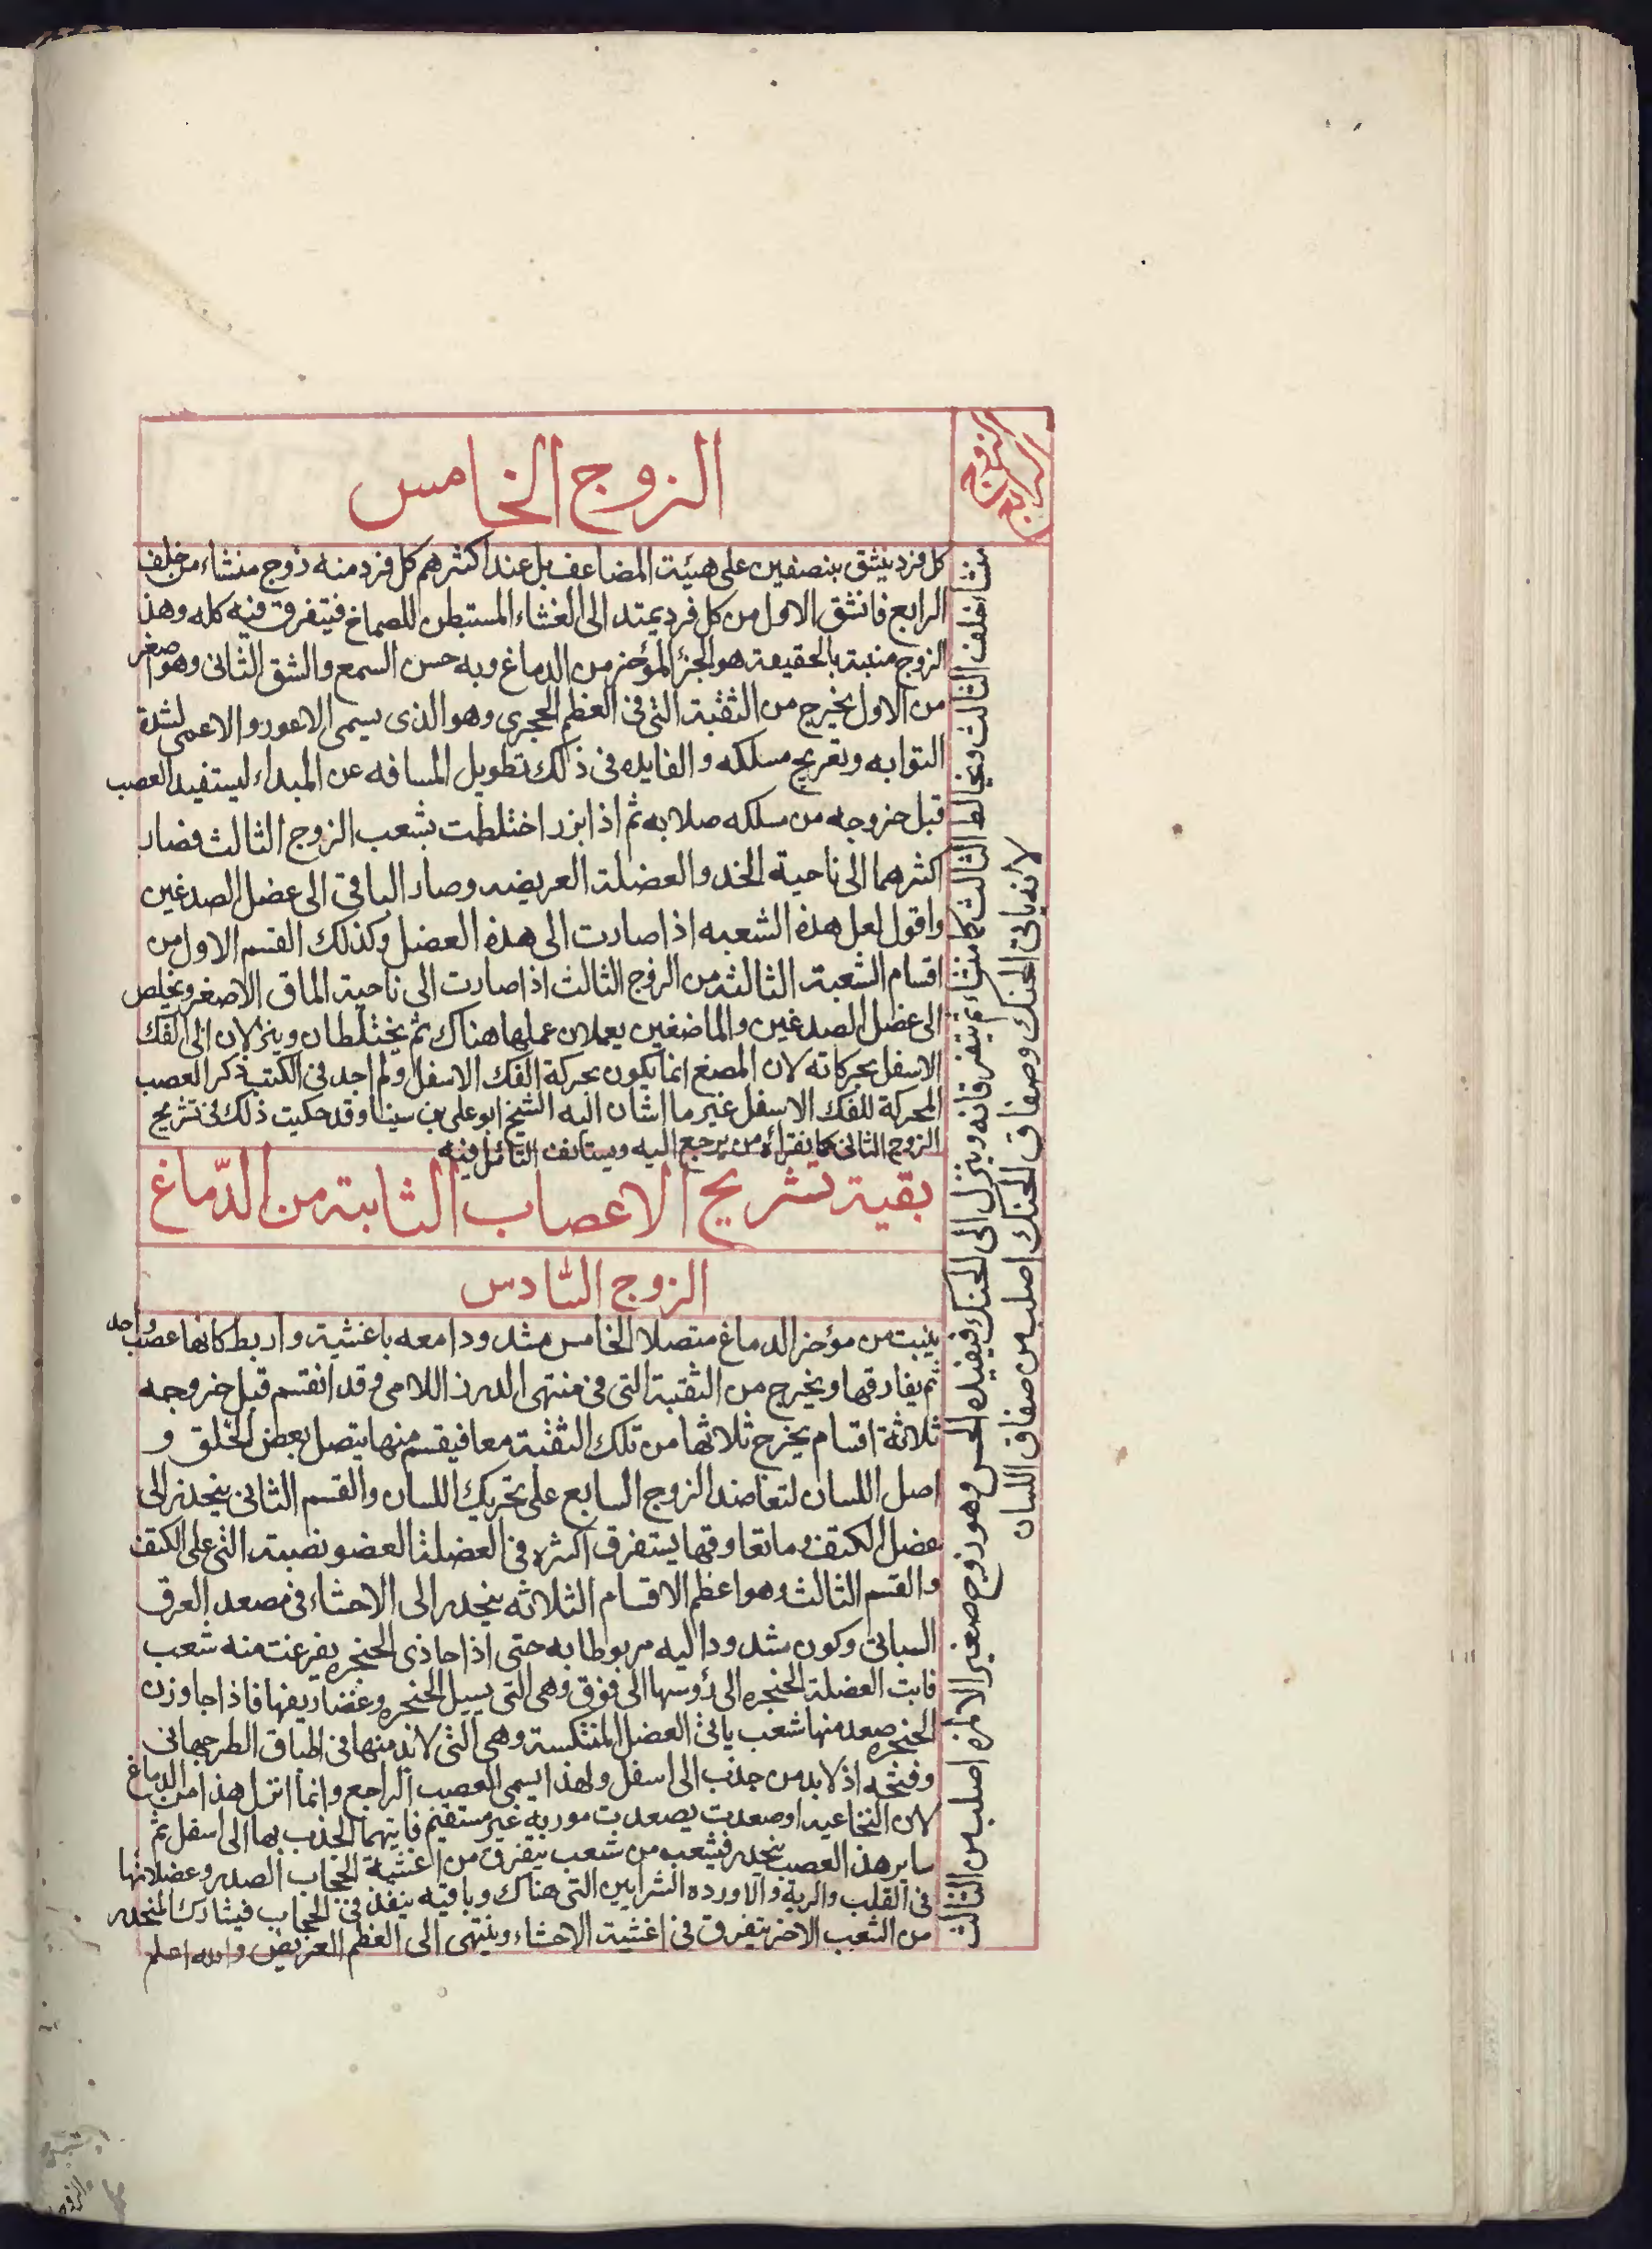 الزوج الرابع
منشاء خلف الثالث ويخالط الثالث كما منشاء ثم يتفرقانه وينزل الى الحنك فيفيده الحس وهو زوج صغير الا انه اصلب من الثالث
لانه ياتى الحنك وصفاق الحنك اصلب من صفاق اللسان
الزوج الخامس
كل فرد ينشق بنصفين على هيئة المضاعف بل عند اكثرهم كل فرد منه زوج منشاء من خلف
الرابع فانشق الاول من كل فرد يمتد الى الغشاء المستبطن للصماخ فيتفرق فيه كله وهذا
الزوج منبته بالحقيقة هو الجزء المؤخر من الدماغ وبه حس السمع والشق الثانى وهو اصغر
من الاول يخرج من الثقبة التى فى العظم الحجرى وهو الذى يسمى الاعور والاعمى لشدة
التوابه وتعريج مسلكه والفايده فى ذلك تطويل المسافه عن المبداء ليستفيد العصب
قبل خروجه من مسلكه صلابه ثم اذا برز اختلطت بشعب الزوج الثالث فصار
اكثرهما الى ناحية الخد والعضلة العريضه وصار الباقى الى عضل الصدغين
واقول لعل هذه الشعبه اذا صارت الى هذه العضل وكذلك القسم الاول من
اقسام الشعبة الثالثة من الزوج الثالث اذا صارت الى ناحية الماق الاصغر ويخلص
الى عضل الصدغين والماضغين يعملان عملها هناك ثم يختلطان وينزلان الى الفك
الاسفل بحركاته لان المضغ انما يكون بحركة الفك الاسفل ولم اجد فى الكتب ذكر العصب
المحركة للفك الاسفل غير ما اشار اليه الشيخ ابو على بن سينا وقد حكيت ذلك فى تشريح
الزوج الثانى كما نقراه من يرجع اليه ويستانف التامل فيه
بقية تشريح الاعصاب الثابتة من الدماغ
الزوج السادس
ينبت من مؤخر الدماغ متصلا الخامس مشدودا معه باغشية واربط كانها عصب واحد
ثم يفارقها ويخرج من الثقبة التى فى منتهى الدرز اللامى وقد انقسم قبل خروجه
ثلاثة اقسام يخرج ثلاثها من تلك الثقبة معا فيقسم منها يتصل بعض الخلق و
اصل اللسان لتعاضد الزوج السابع على تحريك اللسان والقسم الثانى ينحدر الى
عضل الكتف وما تعاوقها يتفرق اكثره فى العضلة العضو نصبته التى على الكتف
والقسم الثالث وهو اعظم الاقسام الثلاثه ينحدر الى الاحشاء فى مصعد العرق
السباتى وكون مشدودا اليه مربوطا به حتى اذا حاذى الحنجره يفرعت منه شعب
فاتت العضلة الحنجره الى رؤسها الى فوق وهى التى يسيل الحنجره وغضاريفها فاذا جاوزن
الحنجره صعد منها شعب ياتى العضل المنتكسة وهى التى لابد منها فى اطباق الطرجهانى
وفتحه اذ لابد من جذب الى اسفل ولهذا يسمى العصب الراجع وانما انزل هذا من الدماغ
لان النخاعيه لو صعدت يصعدت موربه غير مستقيم فايتهما الجذب بها الى اسفل ثم
ساير هذا العصب ينحدر فيشعب من شعب يتفرق من اغشية الحجاب الصدر وعضلاتها
فى القلب والرية والاورده الشرايين التى هناك وباقيه ينفذ فى الحجاب فيشارك المنحدر
من الشعب الاخر يتفرق فى اغشية الاحشاء وينتهى الى العظم العريض والله اعلم